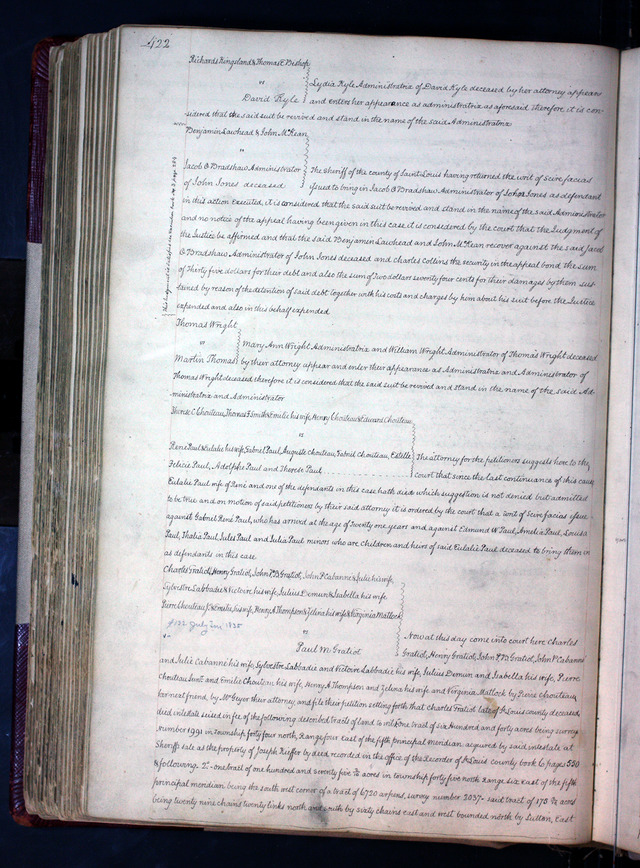 422
Richards Ringeland & Thomas E Bishop
vs
David Kyle
Lydia Kyle Administratrix of David Kyle deceased by her attorney appears
and enters her appearance as administratrix as aforesaid Therefore, it is con-
sidered that the said suit be revived and stand in the name of the said Administratrix
Benjamin Lawhead & John McKean
vs
Jacob O Bradshaw Administrator
of John Jones deceased
The sheriff of the county of Saint Louis having returned the writ of scire facias
issued to bring in Jacob O Bradshaw Administrator of John Jones as defendant
in this action executed, it is considered that the said suit be revived and stand in the name of the said Administrator
and no notice of the appeal having been given in this case it is considered by the court that the Judgment of
the Justice be affirmed and that the said Benjamin Lawhead and John McKean recover against the said Jacob
O Bradshaw Administrator of John Jones deceased and Charles Collins the security in the appeal bond the sum
of Thirty five dollars for their debt and also the sum of Two dollars seventy four cents for their damages by them sus-
tained by reason of the detention of said debt together with his costs and charges by him about his suit before the Justice
expended and also in this behalf expended
Thomas Wright
vs
Martin Thomas
Mary Ann Wright Administratrix and William Wright Administrator of Thomas Wright deceased
by their attorney appear and enter their appearance as Administratrix and Administrator of
Thomas Wright deceased therefore it is considered that the said suit be revived and stand in the name of the said Ad-
ministratrix and Administrator
Therese C Chouteau, Thomas F Smith & Emilie his wife, Henry Chouteau & Edward Chouteau
vs
René Paul & Eulalie his wife, Gabriel Paul, Auguste Chouteau, Gabriel Chouteau, Estelle
Felicie Paul, Adolphe Paul and Therese Paul
The attorney for the petitioners suggests here to the
court that since the last continuance of this cause
Eulalie Paul wife of René and one of the defendants in this case hath died which suggestion is not denied but admitted
to be true and on motion of said petitioners by their said attorney it is ordered by the court that a writ of Scire facias issue
against Gabriel René Paul, who has arrived at the age of twenty one years and against Edmund W Paul, Amelia Paul, Louisa
Paul, Thalia Paul Jules Paul and Julia Paul minors who are children and heirs of said Eulalie Paul deceased to bring them in
as defendants in this case
Charles Gratiot, Henry Gratiot, John P B Gratiot, John P Cabanné & Julie his wife
Sylvestre Labbadie & Victoire his wife Julius Demun & Isabella his wife
Pierre Chouteau Jr & Emilie his wife, Henry A Thompson & Zelina his wife & Virginia Matlock
July Term 1835
vs
Paul M Gratiot
Now at this day come into court here Charles
Gratiot, Henry Gratiot, John P B Gratiot, John P Cabanné
and Julie Cabanné his wife, Sylvestre Labbadie and Victoire Labbadie his wife, Julius Demun and Isabella his wife, Pierre
Chouteau Junr and Emilie Chouteau his wife, Henry A Thompson and Zelina his wife and Virginia Matlock by Pierre Chouteau
her next friend, by Mr Geyer their attorney and file their petition setting forth that Charles Gratiot late of St Louis county deceased,
died intestate seized in fee of the following described tracts of land to wit One tract of six Hundred and forty acres being survey
number 1991 in township forty four north, Range four East of the fifth principal meridian acquired by said intestate at
Sheriffs sale as the property of Joseph Kieffer by deed recorded in the office of the Recorder of St Louis county book G pages 550
& following. 2d - one tract of one hundred and seventy five acres in township forty five north Range six east of the fifth
principal meridian being the south west corner of a tract of 6720 arpens, survey number 3037 - said tract of 175 acres
being twenty nine chains twenty links north and south by sixty chains east and west bounded north by Sutton, East